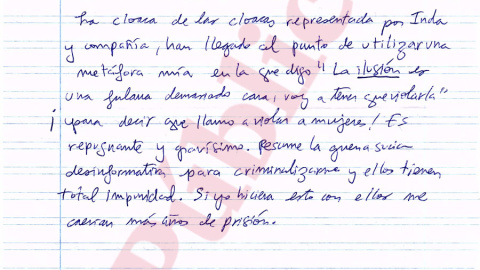 La cloaca de las cloacas representada por Inda
y compañía, han llegado al punto de utilizar una
metáfora mía en la que digo "La ilusión es
una fulana demasiado cara, voy a tener que violarla"
¡ para decir que llamo a violar a mujeres! Es
repugnante y gravísimo. Resume la guerra sucia
desinformativa para criminalizarme y ellos tienen
total impunidad. Si yo hiciera esto con ellos me
caerían más años de prisión.
Público